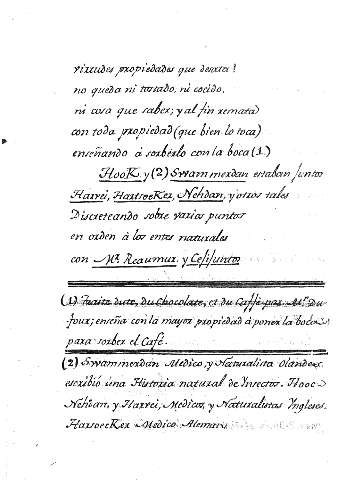 virtudes propiedades que desérta!
no queda ni tostado, ni cocido,
ni cosa que saber; y al fin remata
con toda propiedad (que bien lo toca)
enseñando à sorbérlo con la boca (1)
Hook, y (2) Swammerdan estaban juntos
Harvei, HartsoeKer, Nehdan, y otros tales
Discreteando sobre varios puntos
en orden à los entes naturales
con Mr. Reaumur, y
(1) Traite du te, du Chocolate, et du Caffé par Mr. Du-
four; enseña con la mayor propiedad à poner la boca
para sorber el Café.
(2) Swammerdan Medico, y Naturalista Olandes.
escribió una Historia natural de Insectos. Hooc
Nehdan, y Harvei, Medicos, y Naturalistas Ingleses.
HarsoeKer Medico Aleman